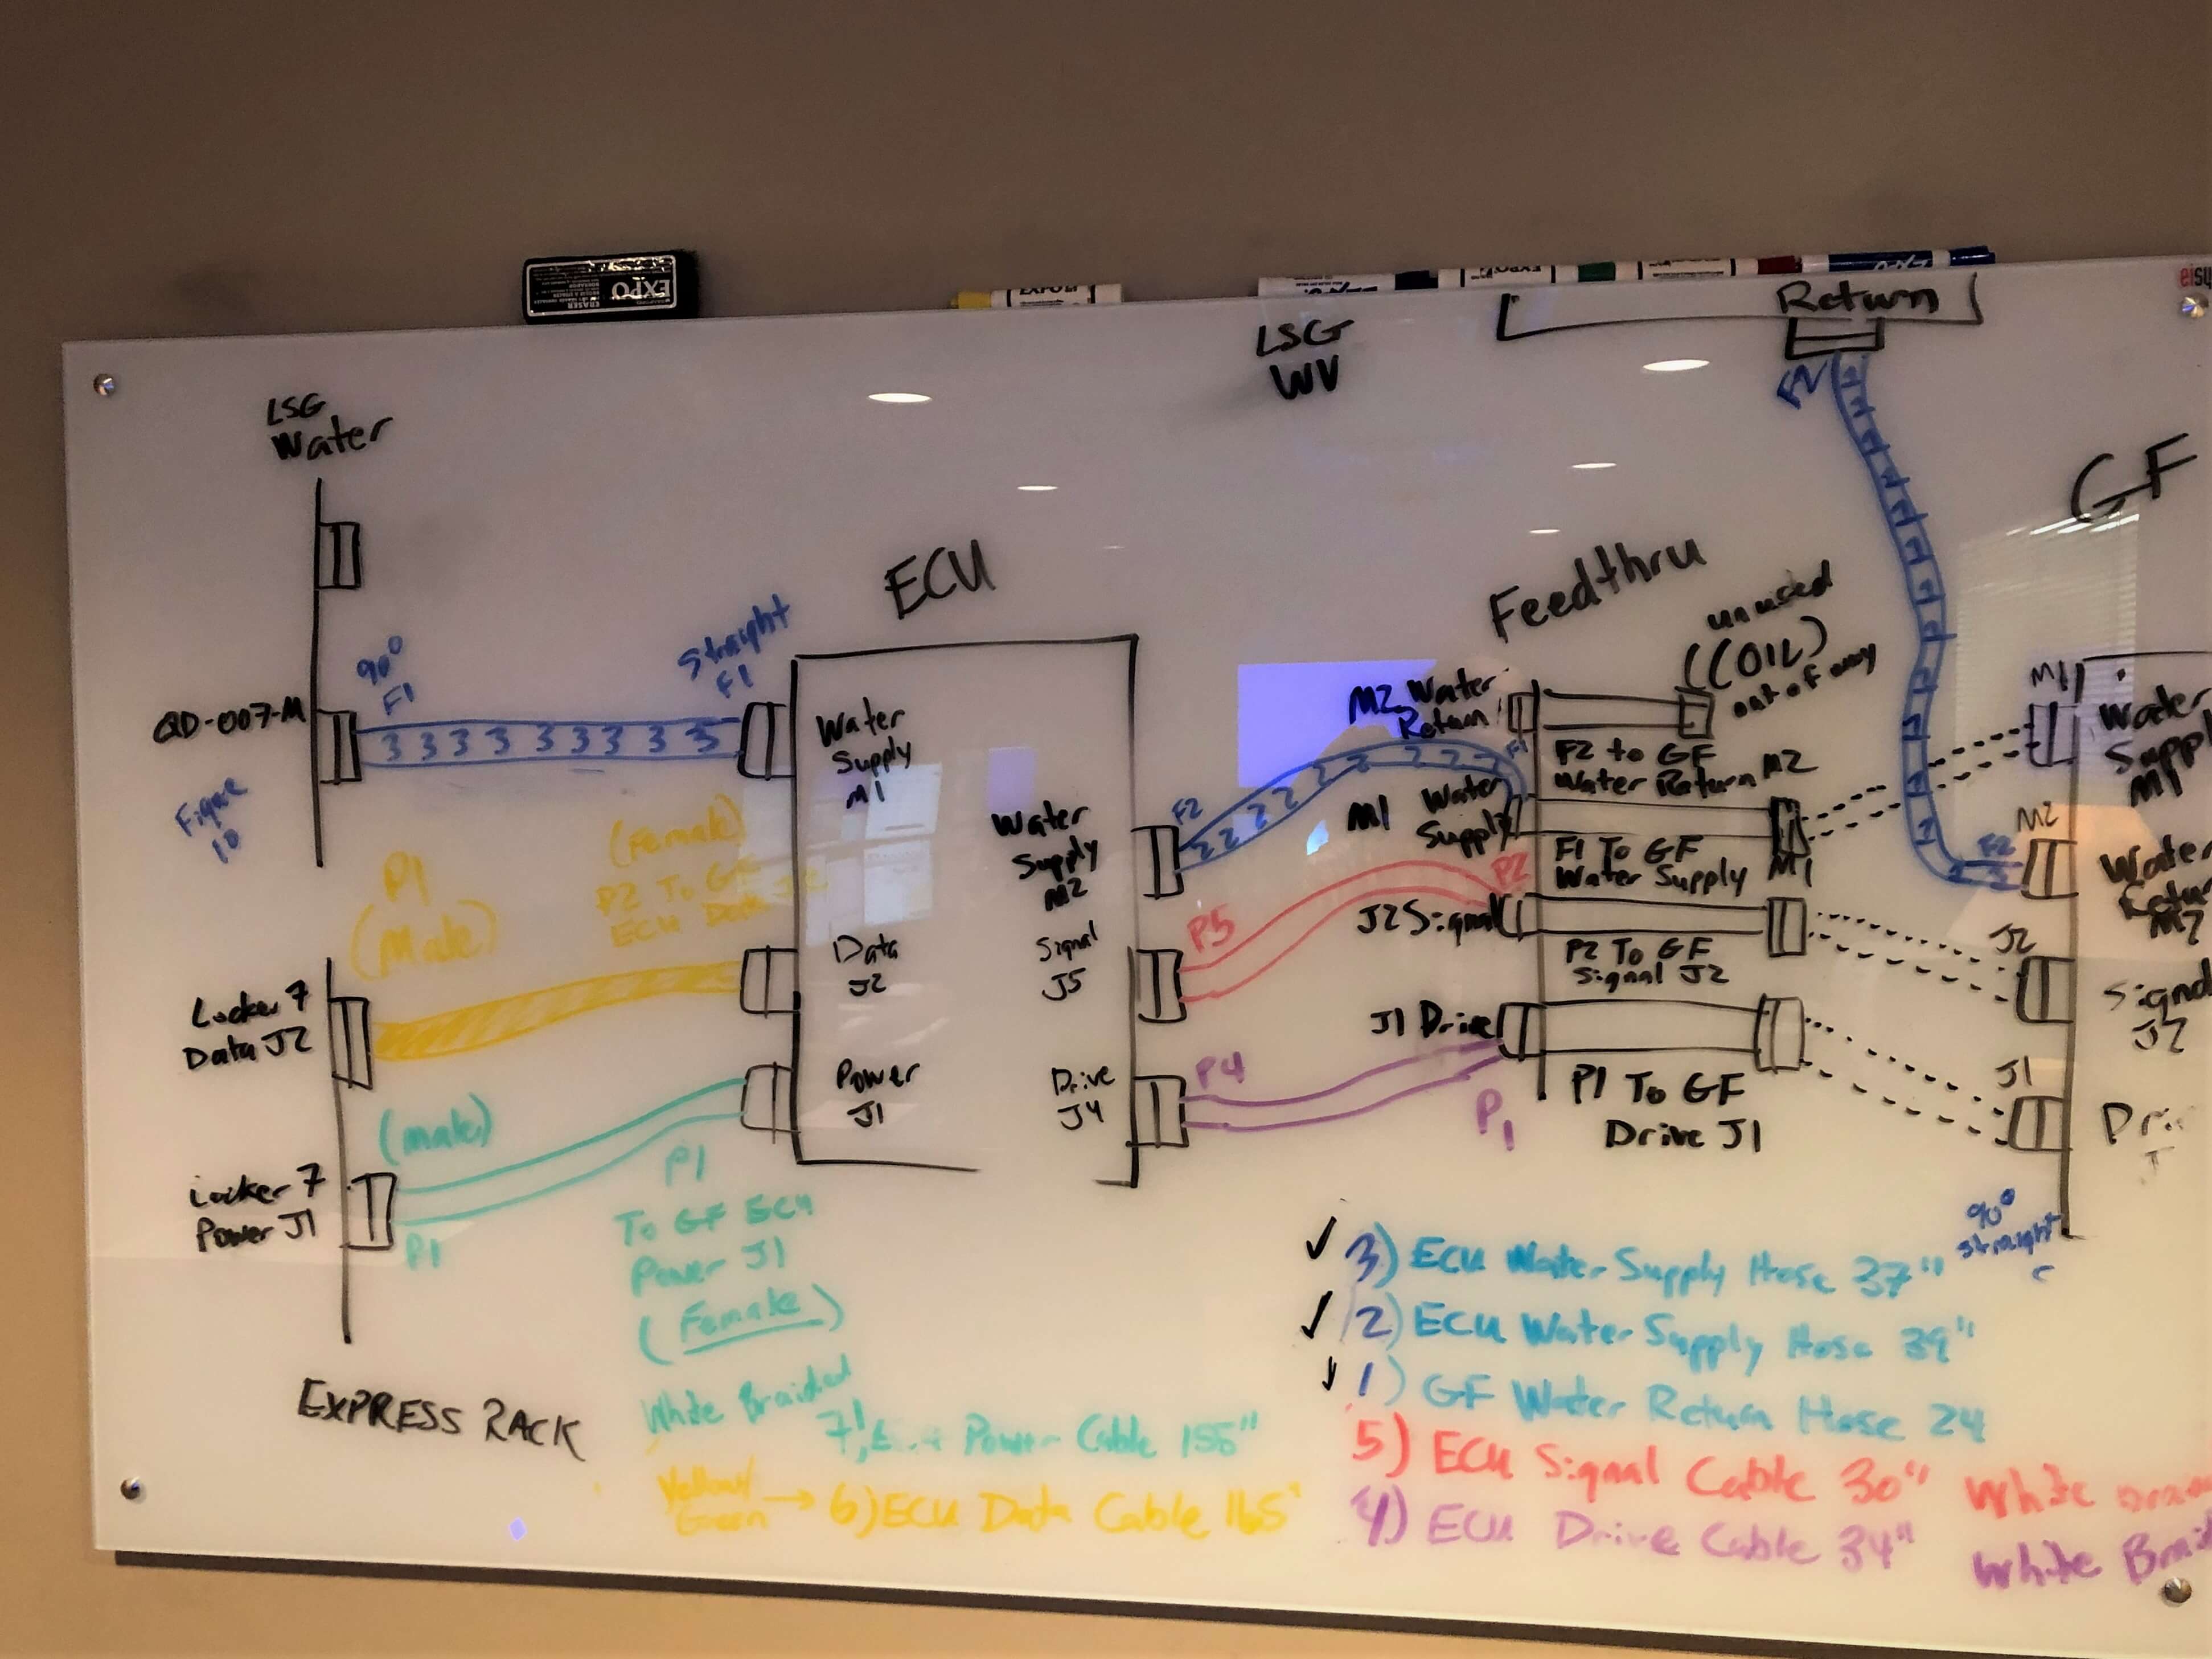 EXPO
ERASER
EXPO
Return
LSG
WV
LSG
Water
F2
GF
ECU
Feedthru
unused
(COIL)
out of way
90°
F1
Straight
F1
QD-007-M
3 3 3 3 3 3 3 3 3
Figure
10
Water
Supply
M1
Water
Supply
M2
Data
J2
Signal
J5
Power
J1
Drive
J4
M2 Water
Return
F2 to GF
Water Return M2
F1
M1 Water
Supply
F1 To GF
Water Supply
M1
F2
2 2 2 2 2 2 2 2 2
P2
J2 Signal
P2 To GF
Signal J2
P5
J1 Drive
P1 To GF
Drive J1
P4
P1
M1
Water
Supply
M1
M2
F2
Water
Return
M2
J2
Signal
J2
J1
P1
(Male)
(Female)
P2 To GF
ECU Data J2
Locker 7
Data J2
(male)
Locker 7
Power J1
P1
P1
To GF ECU
Power J1
(Female)
EXPRESS RACK
White Braided
7) Power Cable 155"
Yellow/
Green → 6) ECU Data Cable 165"
90°
straight
✓ 3) ECU Water Supply Hose 37"
✓ 2) ECU Water Supply Hose 39"
✓ 1) GF Water Return Hose 24
5) ECU Signal Cable 30" White
4) ECU Drive Cable 34" White